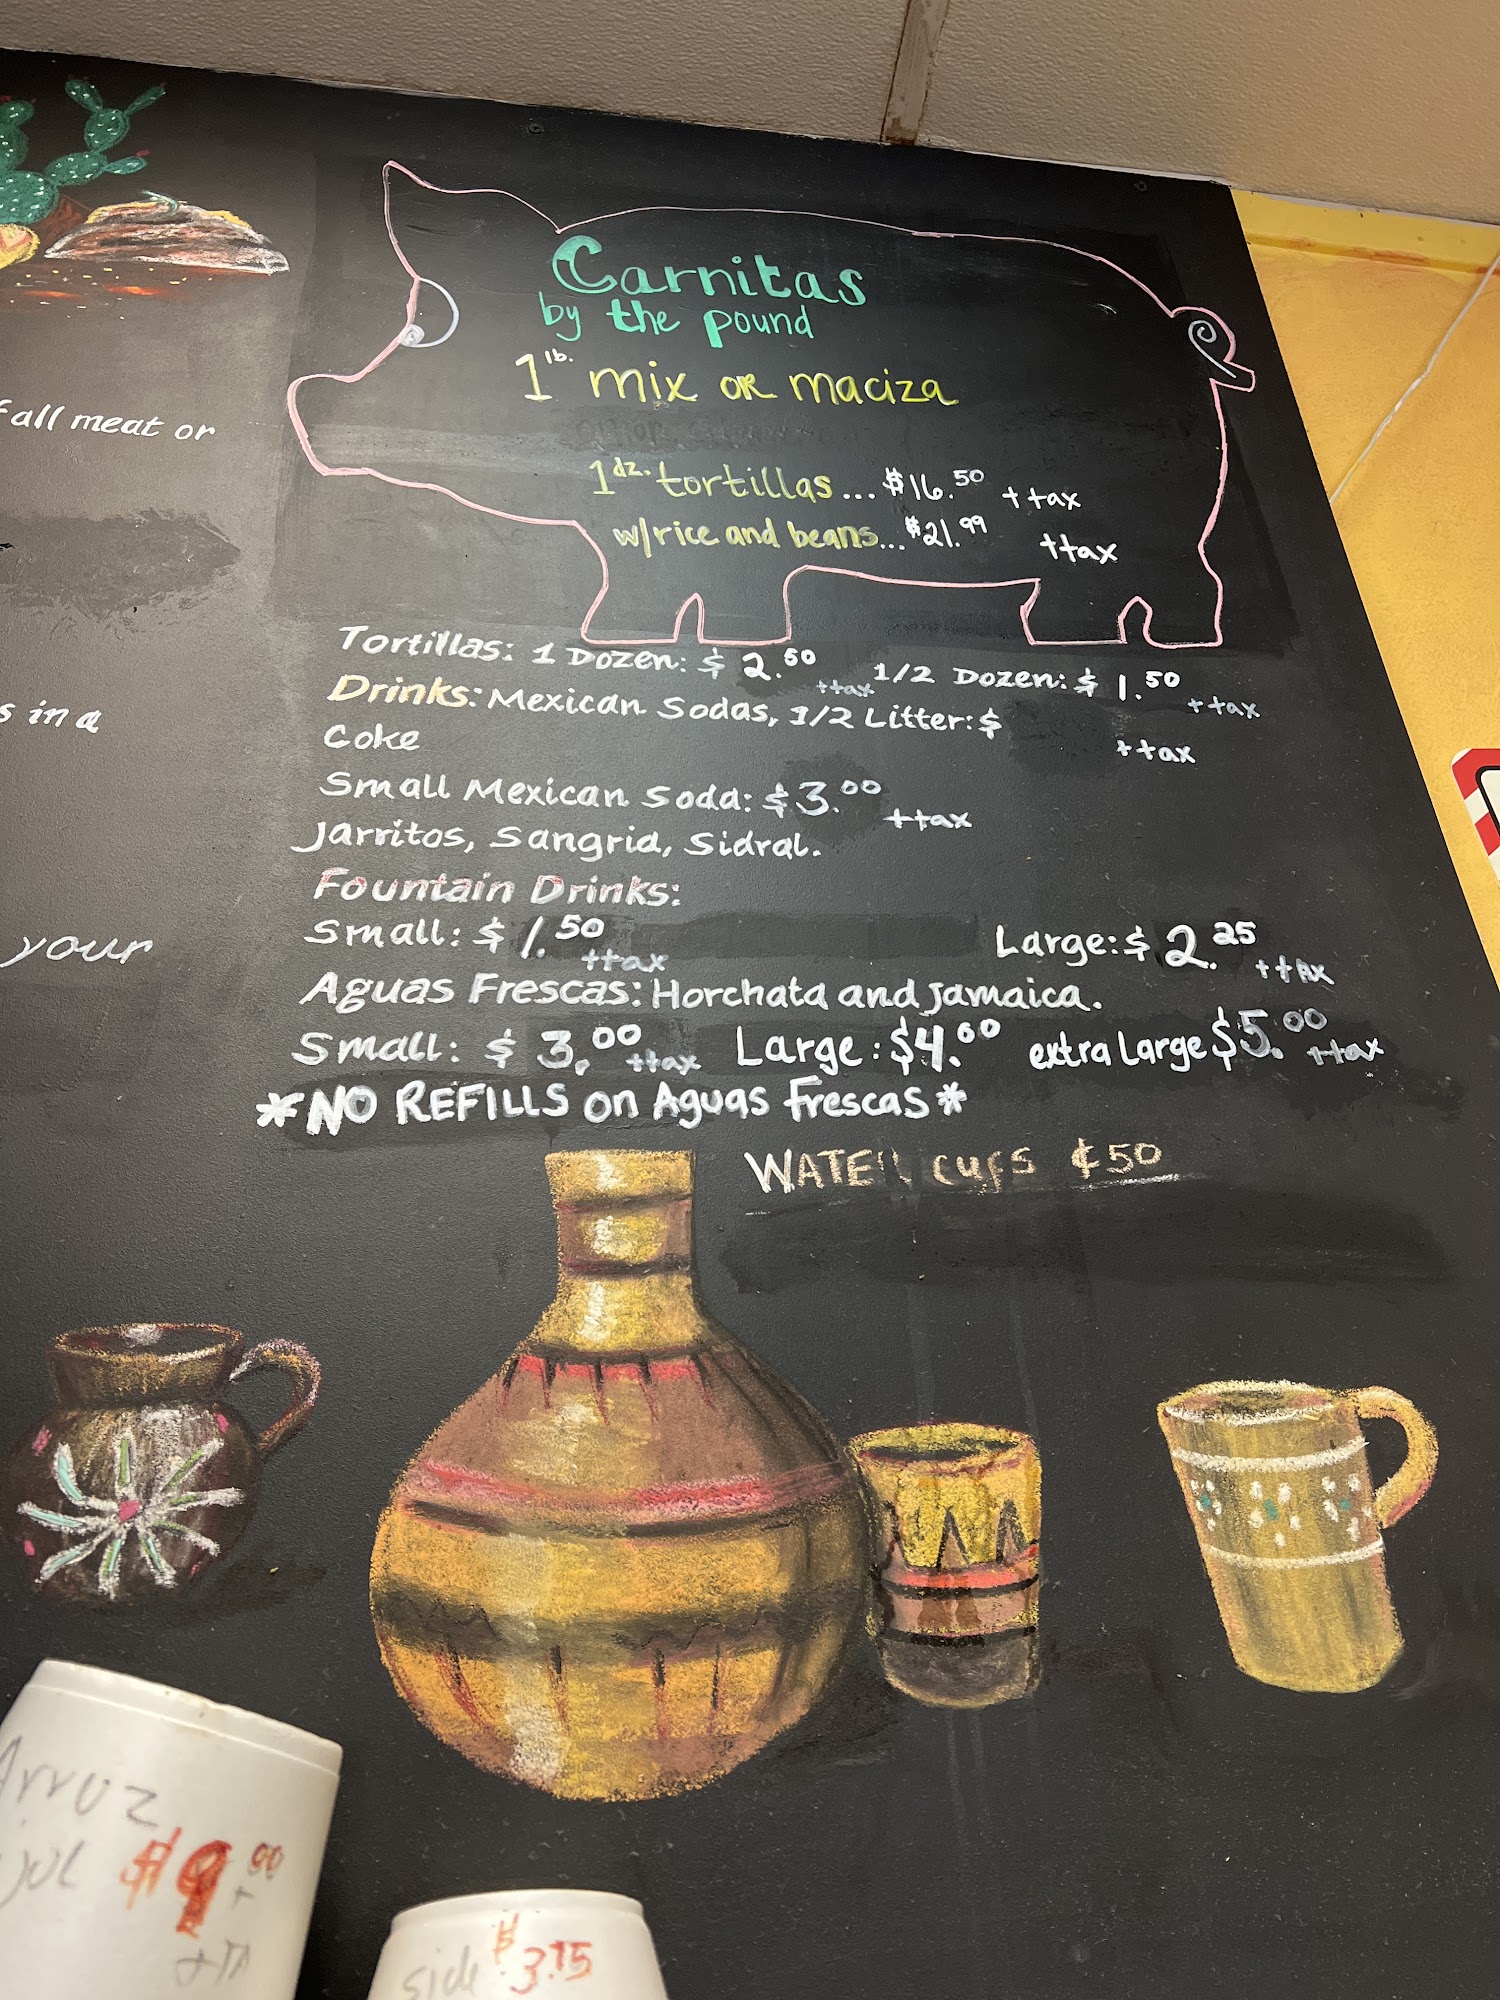 Carnitas
by the pound
1 lb. mix OR maciza
1 dz. tortillas ... $16.50 + tax
w/rice and beans... $21.99 + tax
Tortillas: 1 Dozen: $ 2.50 + tax 1/2 Dozen: $ 1.50 + tax
Drinks: Mexican Sodas, 1/2 Litter: $
Coke + tax
Small Mexican Soda: $3.00 + tax
Jarritos, Sangria, Sidral.
Fountain Drinks:
Small: $ 1.50 + tax Large: $ 2.25 + tax
Aguas Frescas: Horchata and Jamaica.
Small: $ 3.00 + tax Large: $4.00 extra Large $5.00 + tax
*NO REFILLS on Aguas frescas*
WATER cups ¢50
all meat or
s in a
your
Arroz
$9.00
side $3.75